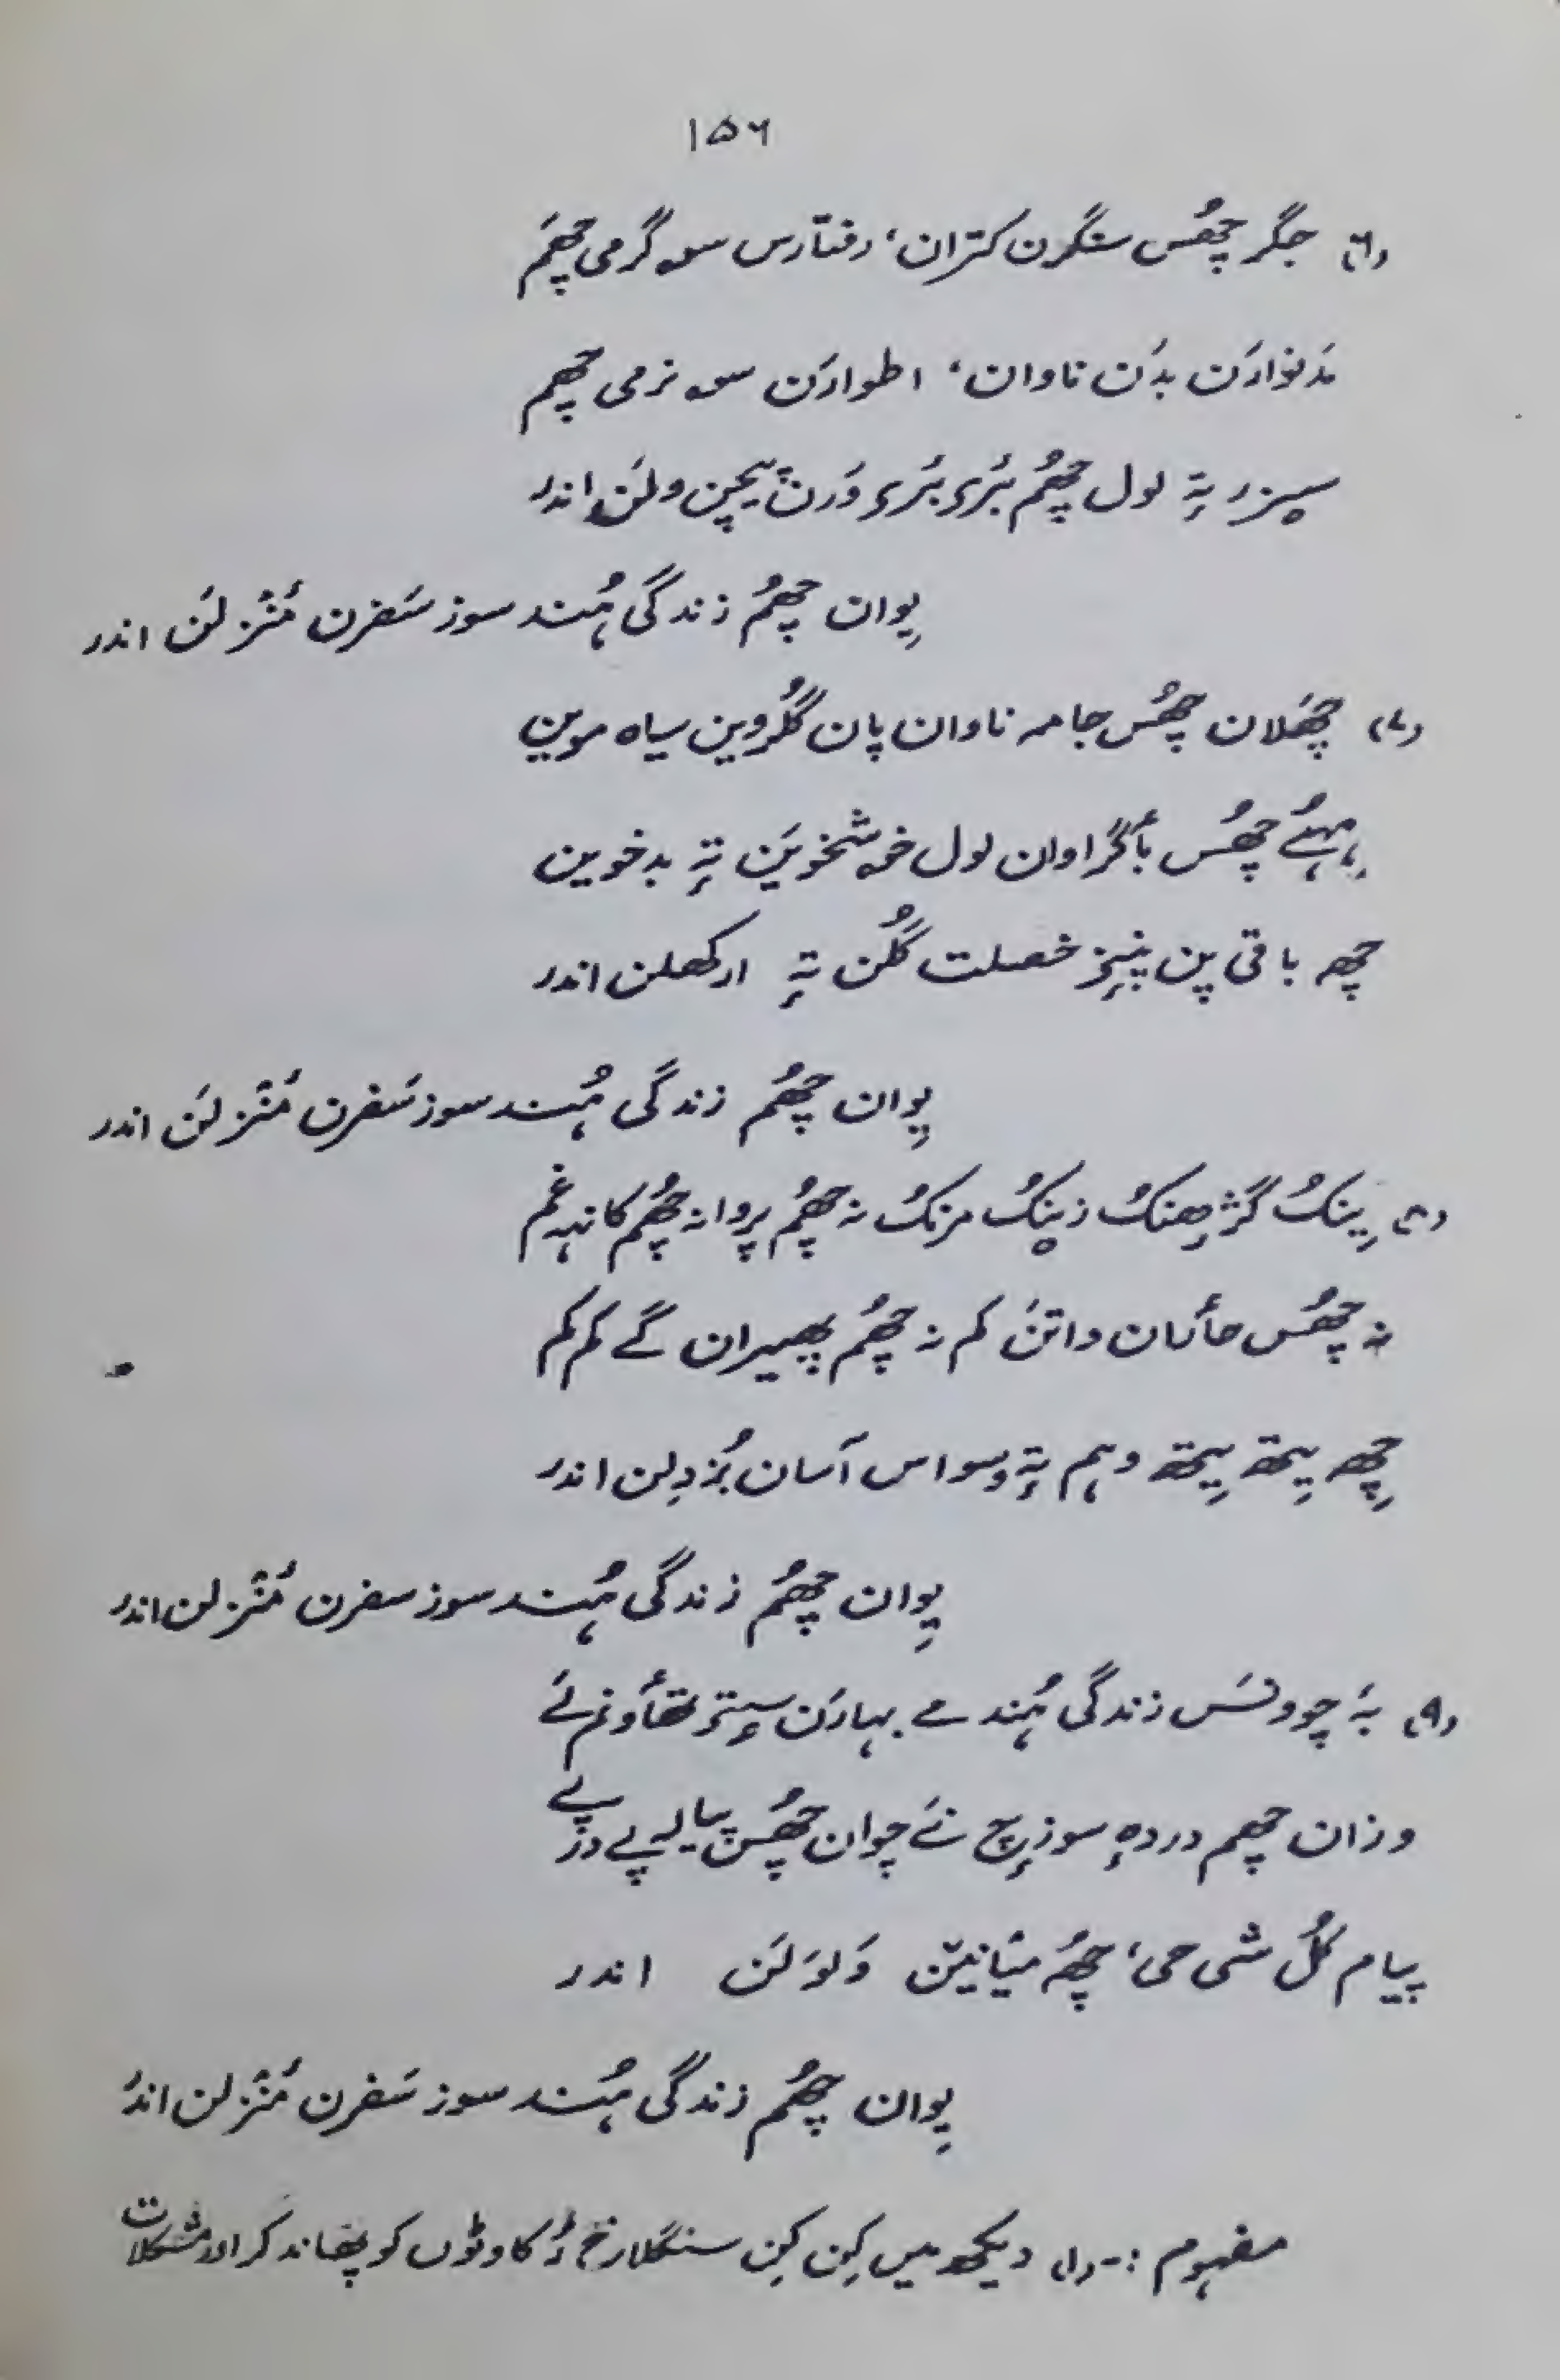 ۱۵۶
(۶) جگر چھُس سنگرن کتران، رفتارس سۄ گرمی چھَم
مَدنوارَن بدَن ناوان، اطوارَن سۄ نرمی چھم
سیزر تہٕ لول چھُم بَری بَری وَرنہٕ یچن ولَن اندر
پِوان چھُم زندگی ہُند سوز سَفرن مَنٛزلَن اندر
(۷) چھَلان چھُس جامہ ناوان پان گُلروین سیاہ موین
ہِہُے چھُس بٲگراوان لول خوشخویَن تہٕ بدخوین
چھِ باقی پن پنِنۍ خصلت گُلن تہٕ ارکھلن اندر
پِوان چھُم زندگی ہُند سوز سَفرن مَنٛزلَن اندر
(۸) یِنُک گژھنُک زینُک مرنُک نہ چھُم پروا نہ چھُم کانہہ غم
نہ چھُس حٲران واتن کم نہ چھُم پھیران گے کم کم
چھِ یِتھ یِتھ وہم تہٕ وسواس آسان بُزدِلن اندر
پِوان چھُم زندگی ہُند سوز سفرن مَنٛزلن اندر
(۹) بہَ چوونَس زندگی ہُند مے بہارَن سٟتۍ تھٲونم لَے
وزان چھم دردہٕ سوزٕچ نَے چوان چھُس پیالہ پَے در پَے
پیام کُل شی حی، چھُہ میٛانیَن وَلوَلَن اندر
پِوان چھُم زندگی ہُند سوز سَفرن مَنٛزلن اندر
مفہوم :- (۱) دیکھ میں کِن کِن سنگلاخ رُکاوٹوں کو پھاند کر اور مشکلات